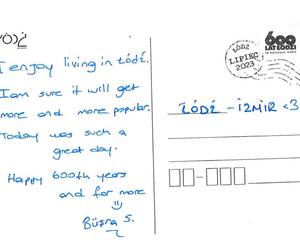 ŁÓDŹ
I enjoy living in Łódź.
I am sure it will get
more and more popular.
Today was such a
great day.
Happy 600th years
and for more
Büşra S.
ŁÓDŹ
LIPIEC
2023
600
LAT ŁODZI
ŁÓDŹ - İZMİR <3